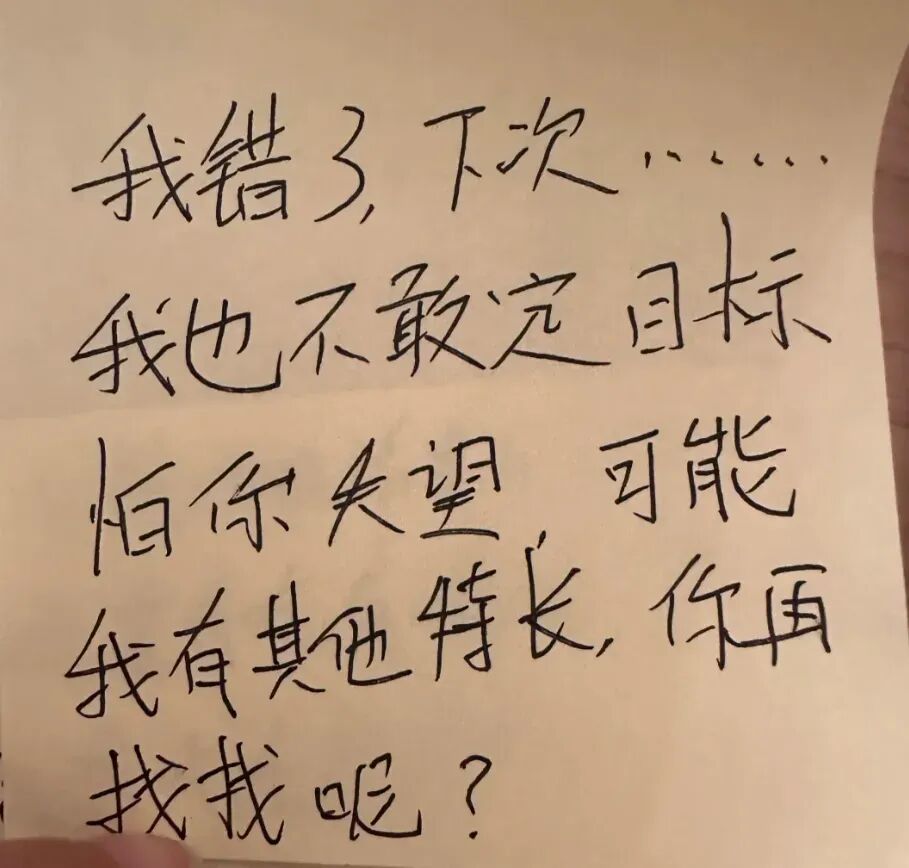 我错了,下次……
我也不敢定目标
怕你失望,可能
我有其他特长,你再
找找呢?